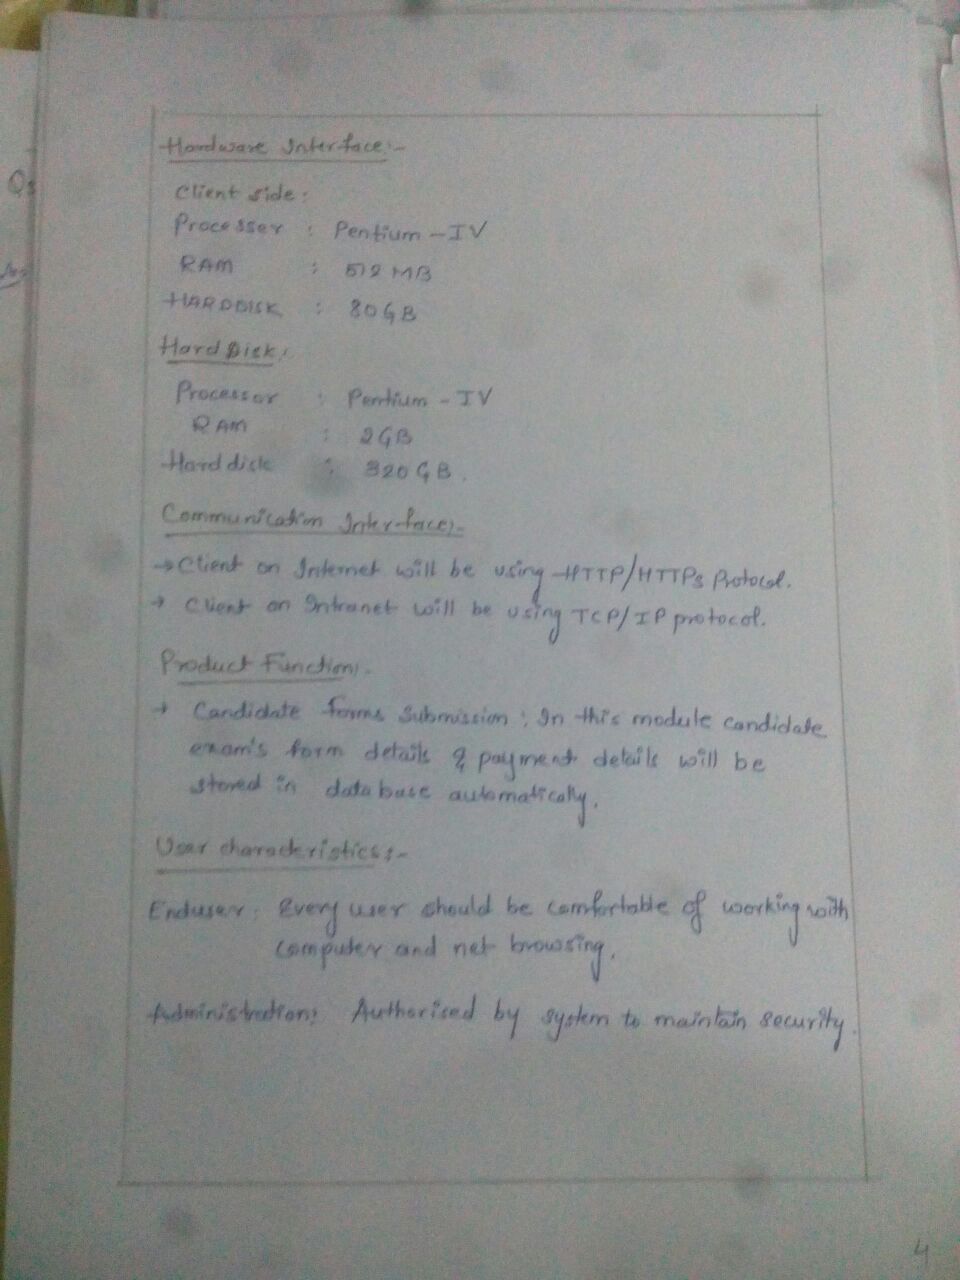 Hardware Interface:-
Client side:
Processer : Pentium - IV
RAM : 512 MB
HARDDISK : 80 GB
Hard Disk:
Processor : Pentium - IV
RAM : 2GB
Hard disk : 320 GB.
Communication Interface:-
→ Client on Internet will be using HTTP/HTTPs Protocol.
→ Client on Intranet will be using TCP/IP protocol.
Product Function:-
→ Candidate forms Submission : In this module candidate
exam's form details & payment details will be
stored in database automatically.
User characteristics:-
Enduser: Every user should be comfortable of working with
computer and net browsing.
Administration: Authorised by system to maintain security.
4